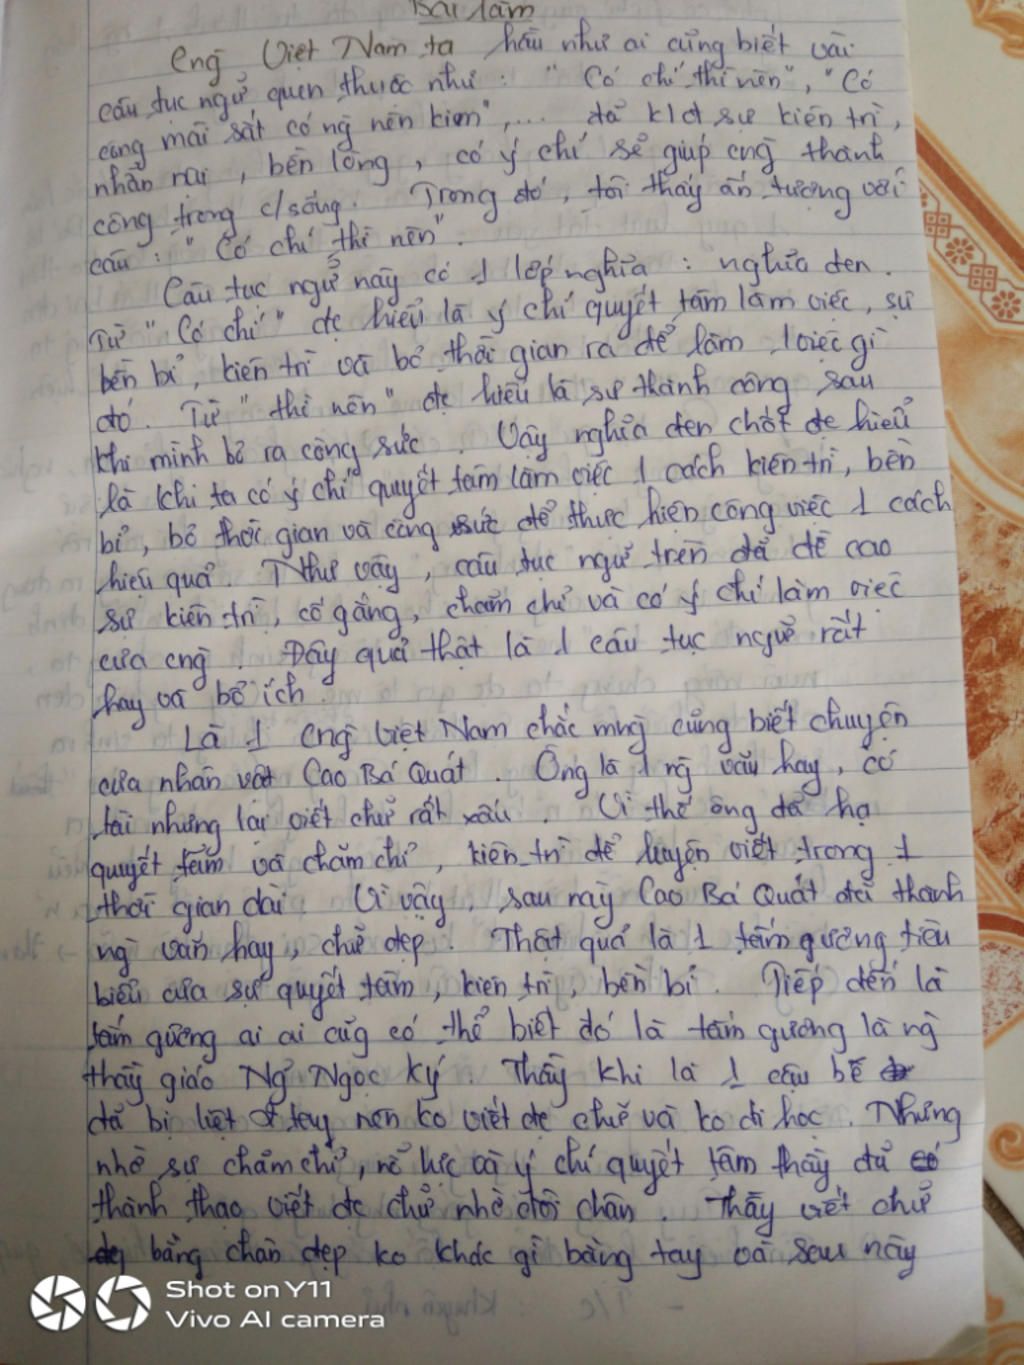 Bài làm
cng̀ Việt Nam ta hầu như ai cũng biết vài
câu tục ngữ quen thuộc như : " Có chí thì nên", "Có
công mài sắt có ng̀ nên kim",... đã k/đ sự kiên trì,
nhẫn nại, bền lòng, có ý chí sẽ giúp cng̀ thành
công trong c/sống. Trong đó, tôi thấy ấn tượng với
câu : " Có chí thì nên".
Câu tục ngữ này có 1 lớp nghĩa : nghĩa đen.
Từ " Có chí " đc hiểu là ý chí quyết tâm làm việc, sự
bền bỉ, kiên trì và bỏ thời gian ra để làm 1 việc gì
đó. Từ " thì nên" đc hiểu là sự thành công sau
khi mình bỏ ra công sức. Vậy nghĩa đen chốt đc hiểu
là khi ta có ý chí quyết tâm làm việc 1 cách kiên trì, bền
bỉ, bỏ thời gian và công sức để thực hiện công việc 1 cách
hiệu quả. Như vậy, câu tục ngữ trên đã đề cao
sự kiên trì, cố gắng, chăm chỉ và có ý chí làm việc
của cng̀. Đây quả thật là 1 câu tục ngữ rất
hay và bổ ích.
Là 1 cng̀ Việt Nam chắc mng̀ cũng biết chuyện
của nhân vật Cao Bá Quát. Ông là 1 ng̀ văn hay, có
tài nhưng lại viết chữ rất xấu. Vì thế ông đã hạ
quyết tâm và chăm chỉ, kiên trì để luyện viết trong 1
thời gian dài. Vì vậy, sau này Cao Bá Quát đã thành
ng̀ văn hay, chữ đẹp. Thật quả là 1 tấm gương tiêu
biểu của sự quyết tâm, kiên trì, bền bỉ. Tiếp đến là
tấm gương ai ai cũg có thể biết đó là tấm gương là ng̀
thầy giáo Ng̃ Ngọc Ký. Thầy khi là 1 cậu bé
đã bị liệt tay nên ko viết đc chữ và ko đi học. Nhưng
nhờ sự chăm chỉ, nỗ lực và ý chí quyết tâm thầy đã
thành thạo viết đc chữ nhờ đôi chân. Thầy viết chữ
bằng chân đẹp ko khác gì bằng tay và sau này
Shot on Y11
Vivo AI camera